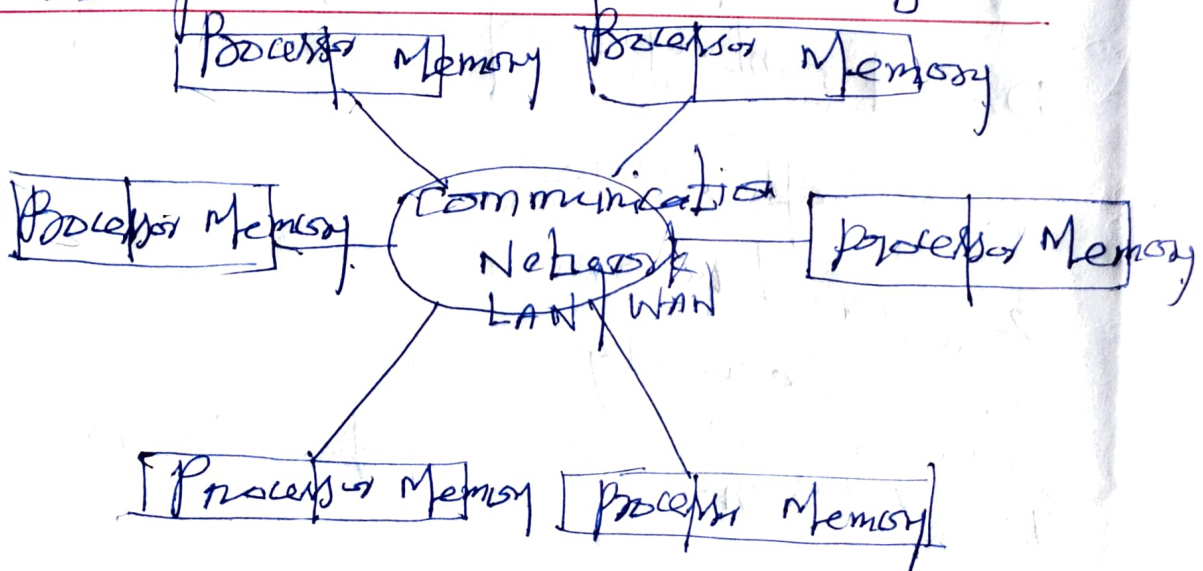 Processor Memory
Processor Memory
Processor Memory
Communication
Network
LAN / WAN
Processor Memory
Processor Memory
Processor Memory